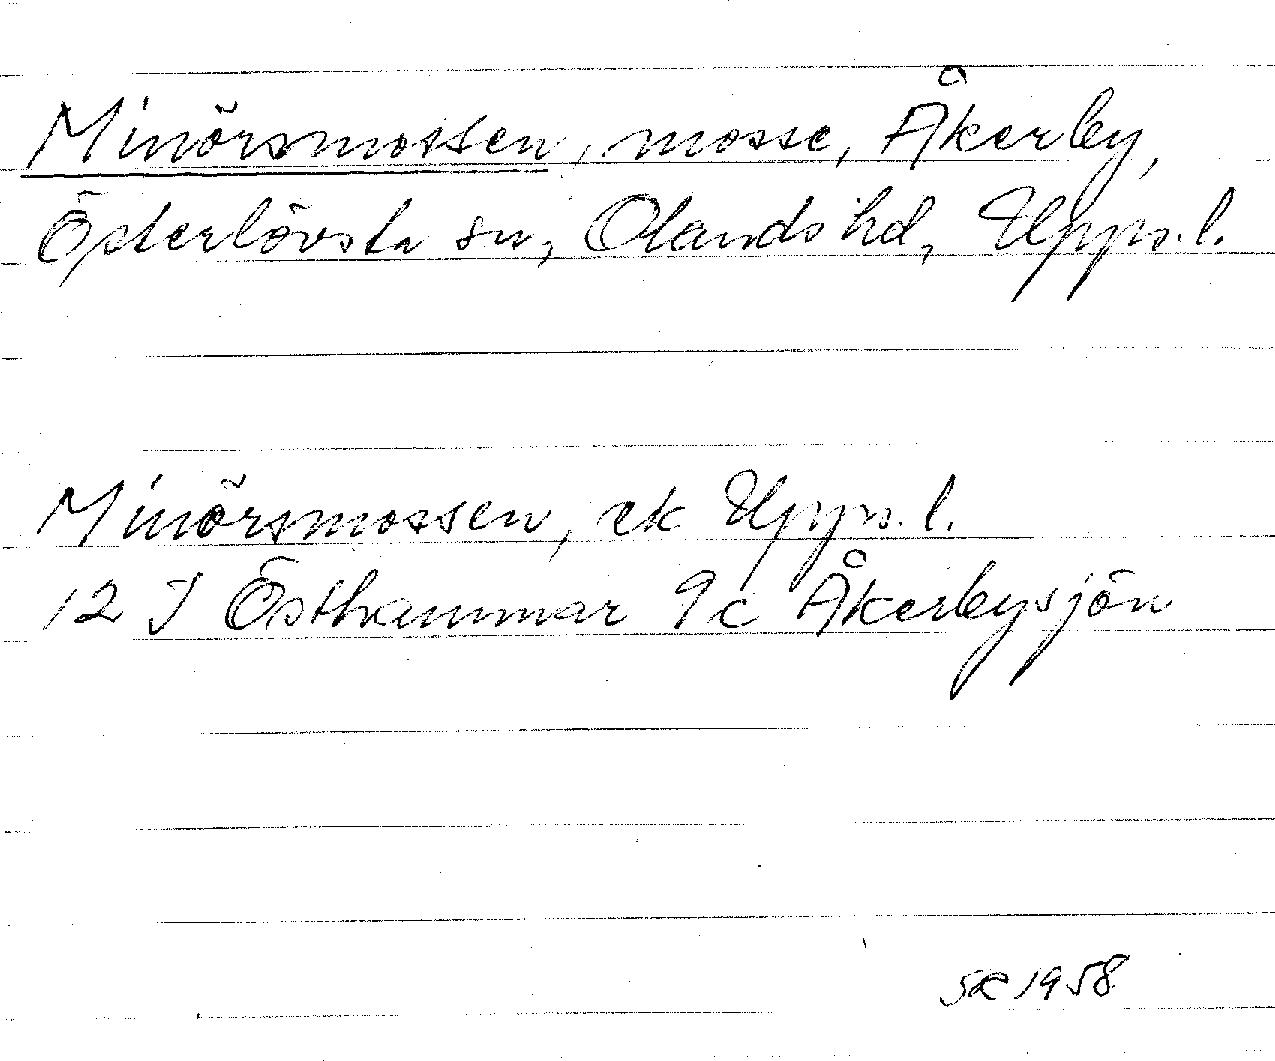 Minörsmossen, mosse, Åkerby,
Österlövsta sn, Olands hd, Upps. l.
Minörsmossen, ek Upps. l.
12 I Östhammar 9c Åkerbysjön
SR 1958